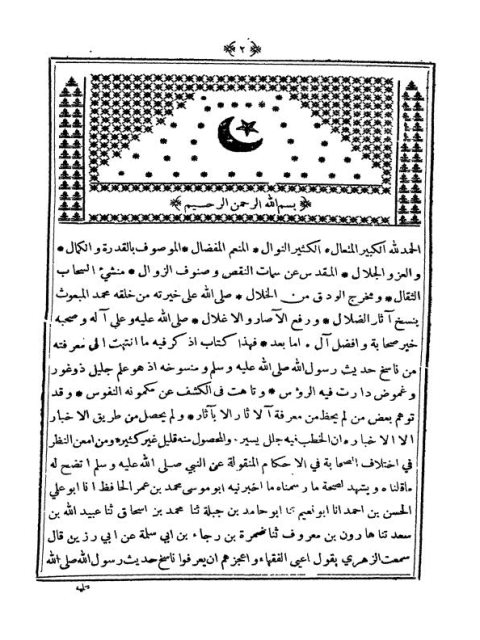 ﴿ ٢ ﴾
﴿ بسم الله الرحمن الرحيم ﴾
الحمد لله الكبير المتعال * الكثير النوال * المنعم المفضال * الموصوف بالقدرة والكمال *
والعز والجلال * المقدس عن سمات النقص وصنوف الزوال * منشئ السحاب
الثقال * ومخرج الودق من الخلال * صلى الله على خيرته من خلقه محمد المبعوث
بنسخ آثار الضلال * ورفع الآصار والاغلال * صلى الله عليه وعلى آله وصحبه
خير صحابة وافضل آل * اما بعد * فهذا كتاب اذكر فيه ما انتهت الى معرفته
من ناسخ حديث رسول الله صلى الله عليه وسلم ومنسوخه اذ هو علم جليل ذو غور
وغموض دارت فيه الرؤس * وتاهت فى الكشف عن مكنونه النفوس * وقد
توهم بعض من لم يحظ من معرفة الآثار الا بآثار * ولم يحصل من طريق الاخبار
الا الاخبار * ان الخطب فيه جلل يسير * والمحصول منه قليل غير كثير * ومن امعن النظر
في اختلاف الصحابة في الاحكام المنقولة عن النبي صلى الله عليه وسلم اتضح له
ما قلناه ويشهد لصحة ما رسمناه ما اخبرنيه ابو موسى محمد بن عمر الحافظ انا ابو علي
الحسن بن احمد انا ابو نعيم ثنا ابو حامد بن جبلة ثنا محمد بن اسحاق ثنا عبيد الله بن
سعد ثنا هارون بن معروف ثنا ضمرة بن رجاء بن ابي سلمة عن ابي رزين قال
سمعت الزهري يقول اعيى الفقهاء واعجزهم ان يعرفوا ناسخ حديث رسول الله صلى الله